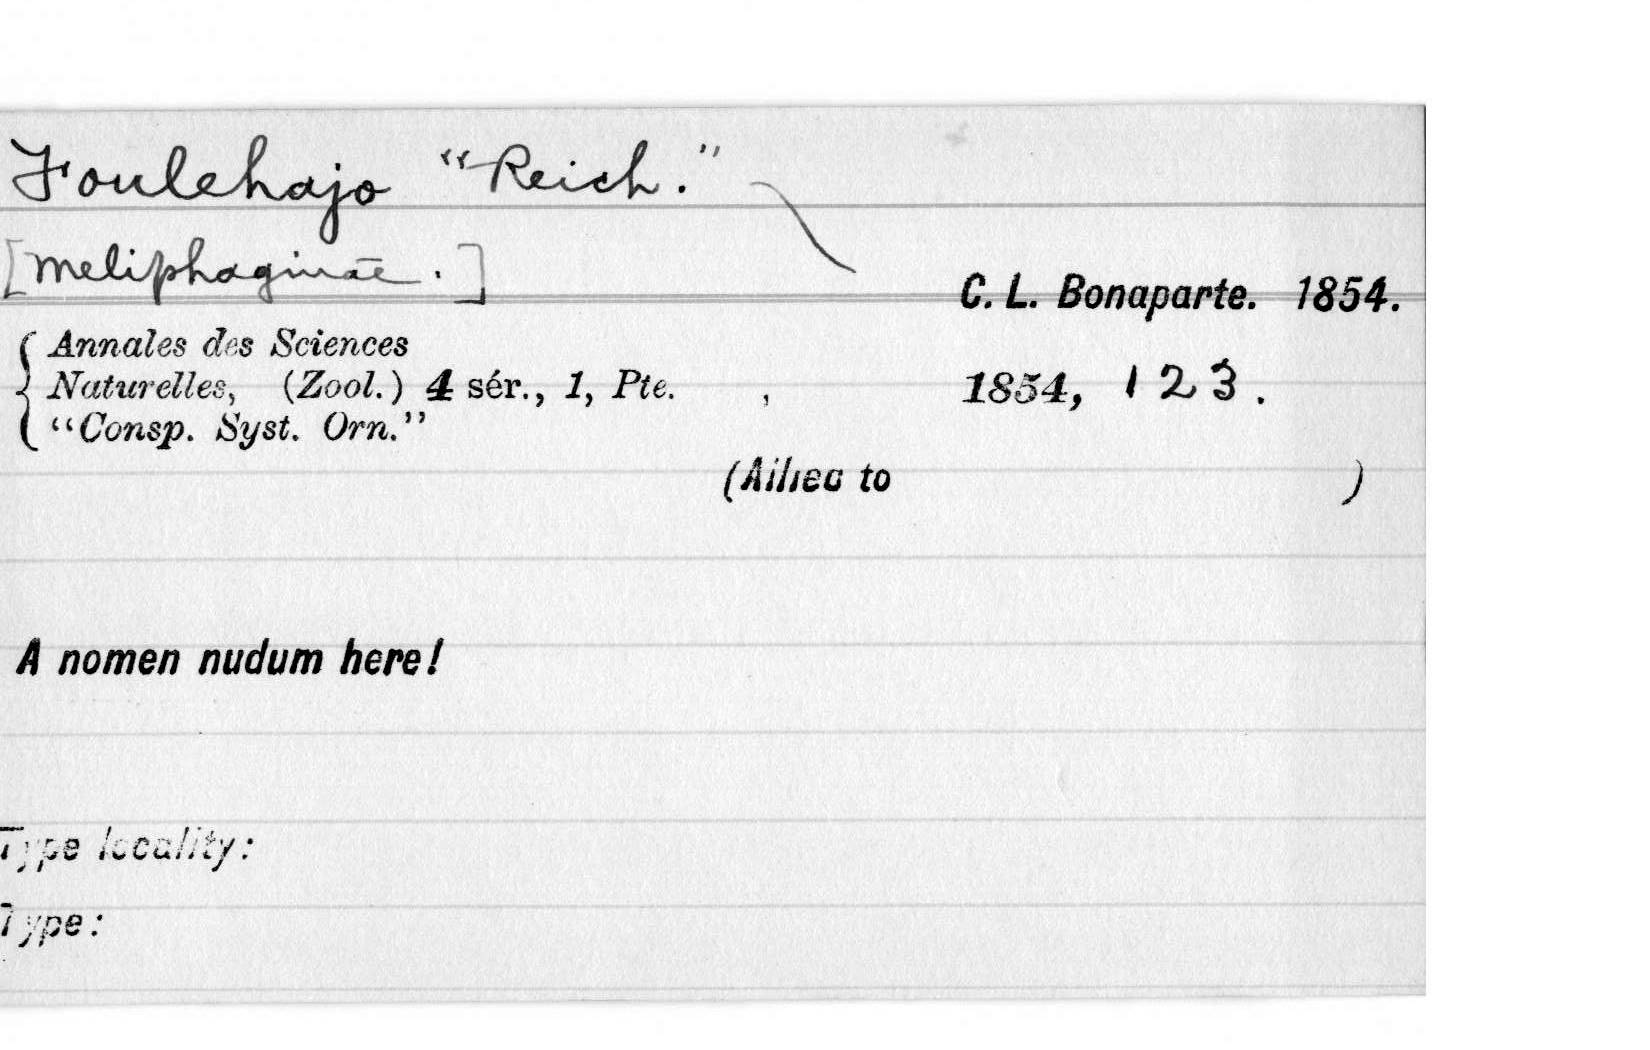 Foulehajo "Reich."
[Meliphaginae.]
C. L. Bonaparte. 1854.
Annales des Sciences
Naturelles, (Zool.) 4 sér., 1, Pte. , 1854, 123.
"Consp. Syst. Orn."
(Allied to )
A nomen nudum here!
Type locality:
Type: